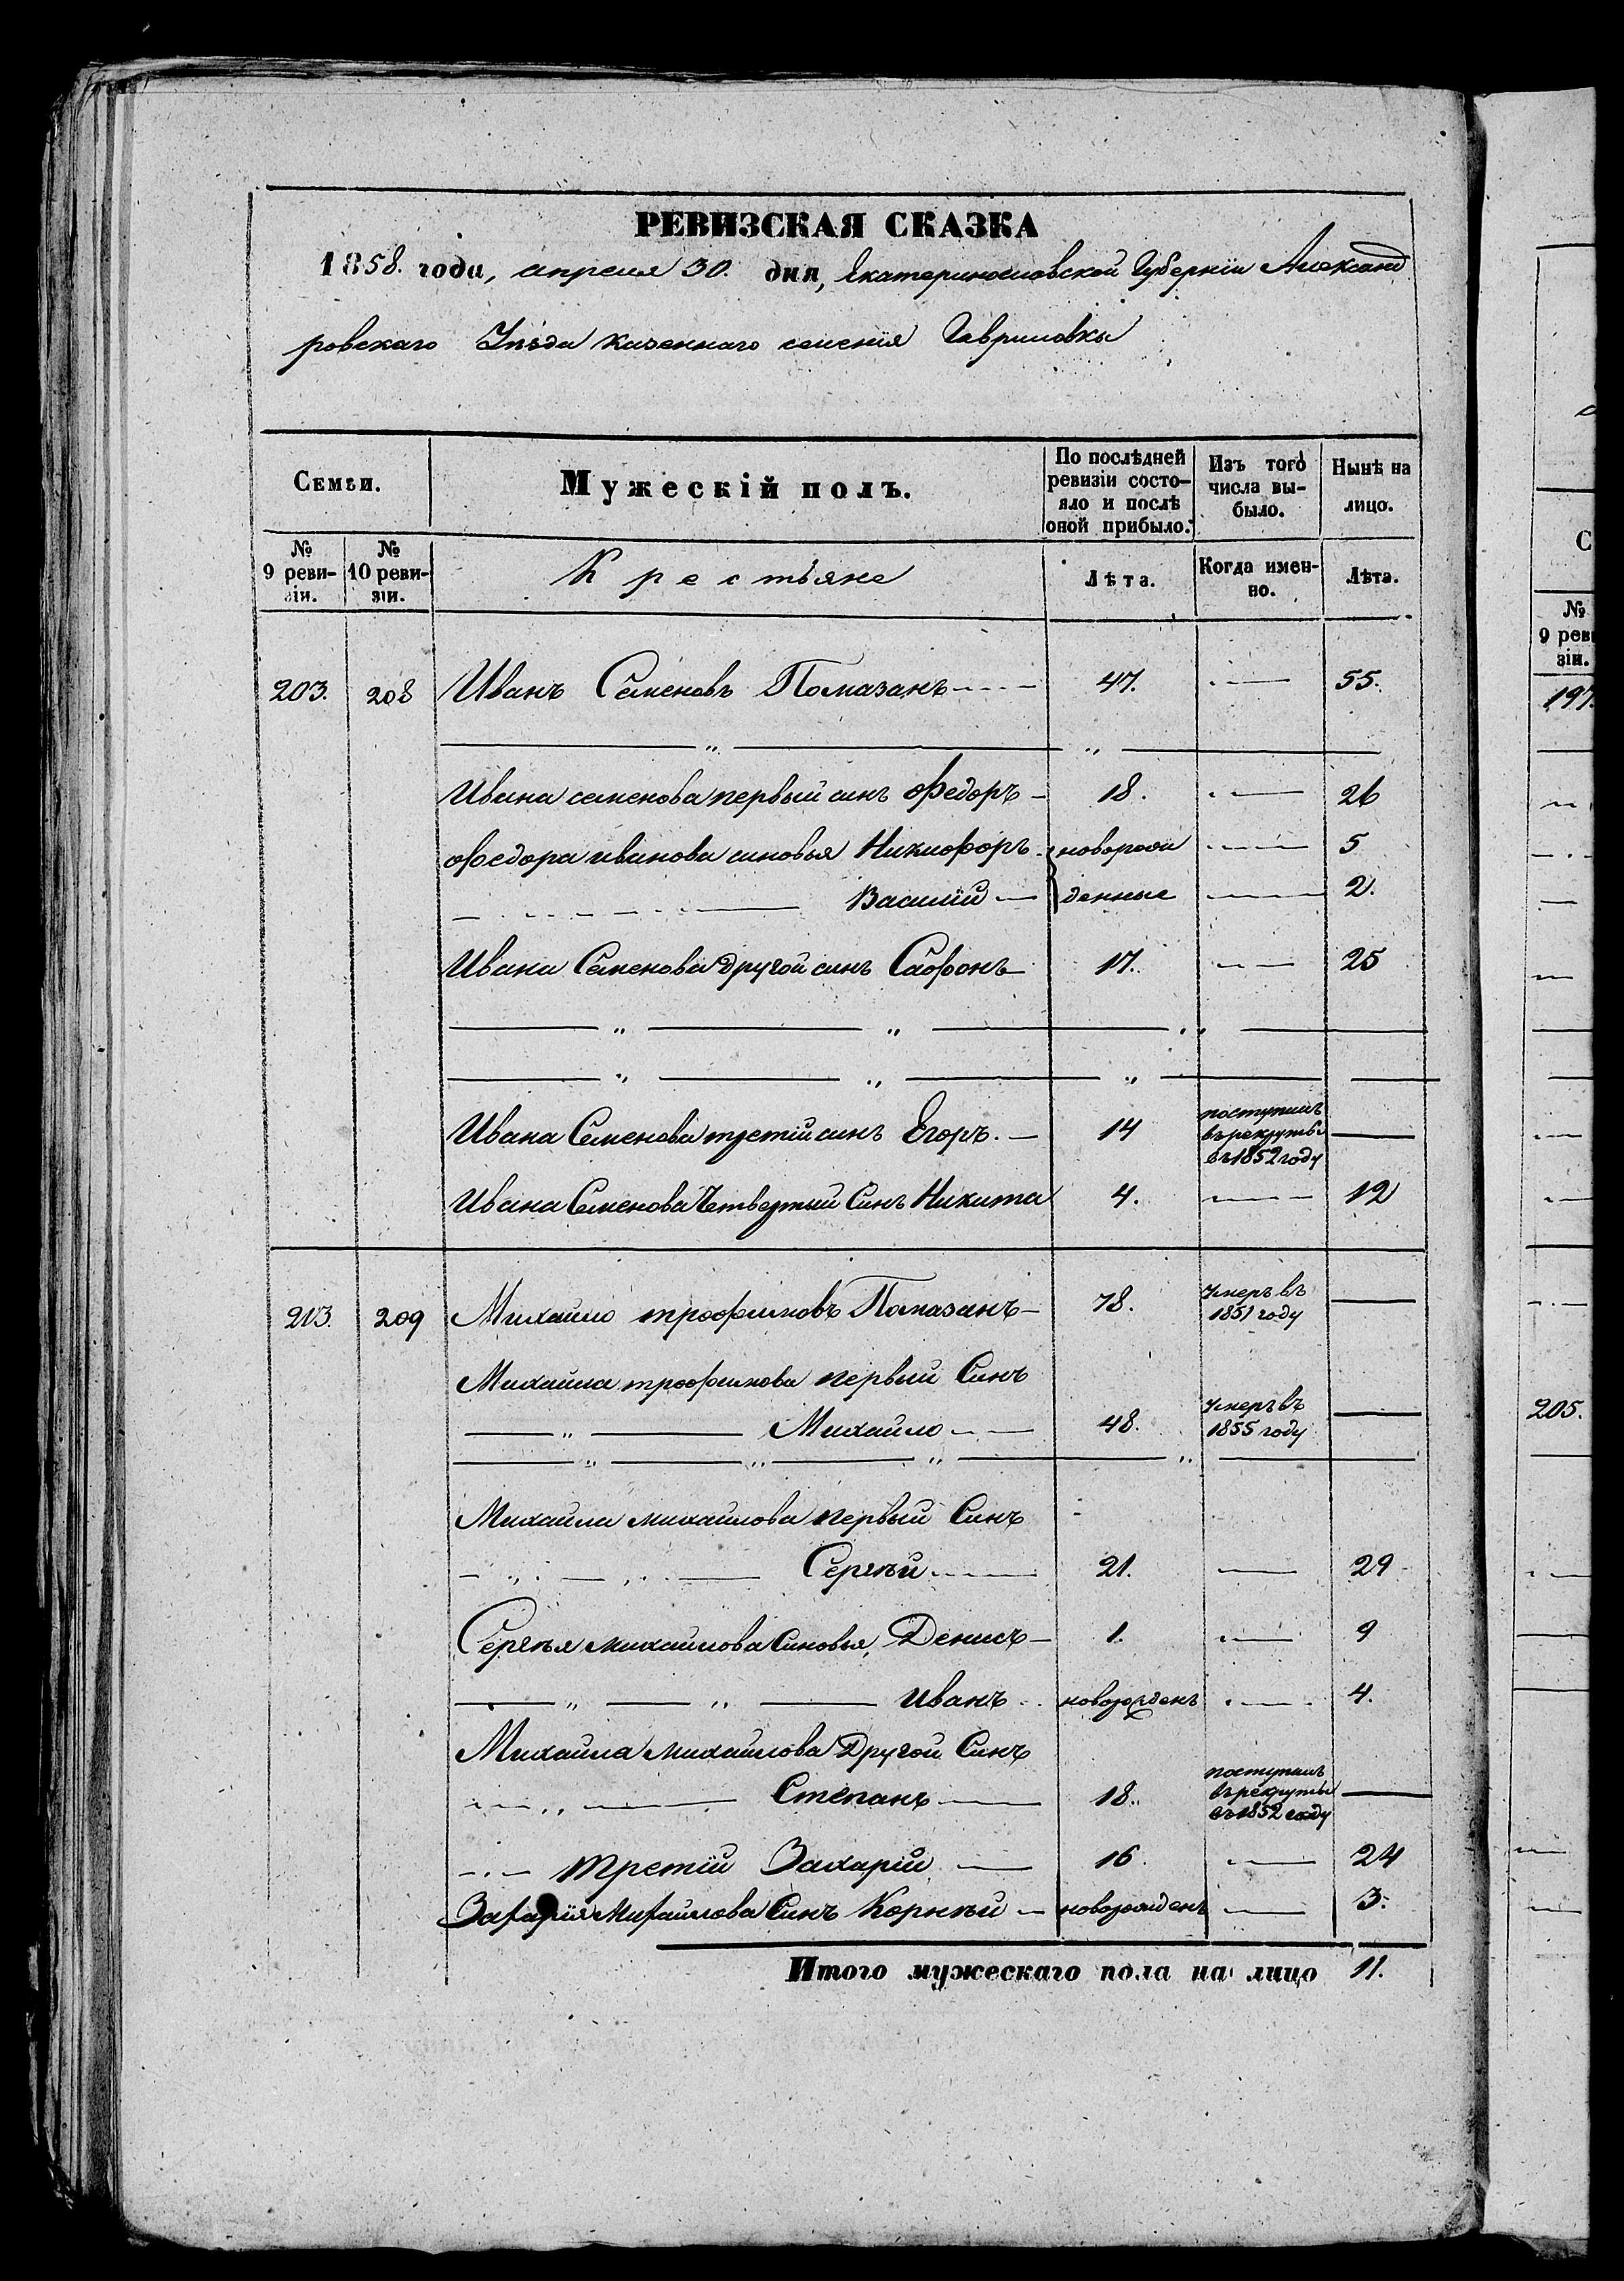 РЕВИЗСКАЯ СКАЗКА
1858. года, апреля 30. дня, Екатеринославской Губерніи Александ
ровскаго Уѣзда казеннаго селенія Гавриловки
Семьи.
Мужескій полъ.
По послѣдней ревизіи состояло и послѣ оной прибыло.
Изъ того числа выбыло.
Нынѣ на лицо.
№ 9 ревизіи.
№ 10 ревизіи.
Крестьяне
Лѣта.
Когда именно.
Лѣта.
203. 208 Иванъ Семеновъ Помазанъ 47. — 55.
Ивана семенова первый синъ Федоръ 18. — 26
Федора иванова синовья Никифоръ новорож — 5
Василій денные — 2.
Ивана Семенова Другой синъ Сафонъ 17. — 25
Ивана Семенова третій синъ Егоръ. 14 поступилъ въ рекруты въ 1852 году —
Ивана Семенова Четвертый Синъ Никита 4. — 12
213. 209 Михайло трофимовъ Помазанъ 78. умеръ въ 1851 году —
Михайла трофимова первый Синъ
Михайло 48. умеръ въ 1855 году —
Михайла михайлова первый Синъ
Сергѣй 21. — 29
Сергѣя михайлова Синовья, Денисъ 1. — 9
иванъ новорожденъ — 4.
Михайла михайлова Другой Синъ
Степанъ 18. поступилъ въ рекруты въ 1852 году —
третій Захарій 16. — 24
Захарія Михайлова Синъ Корнѣй новорожденъ — 3.
Итого мужескаго пола на лицо 11.
С
№
9 реви
зіи.
197.
205.